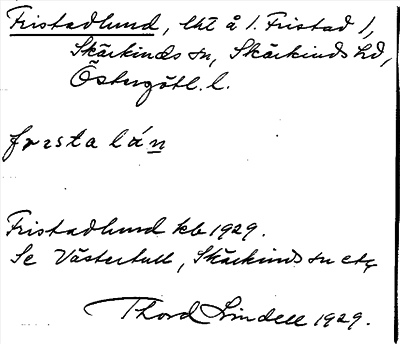 Fristadlund, lht å 1. Fristad 1,
Skärkinds sn, Skärkinds hd,
Östergötl. l.
frestalán
Fristadlund kb 1929.
Se Västertull, Skärkinds sn etc
Thord Lindell 1929.